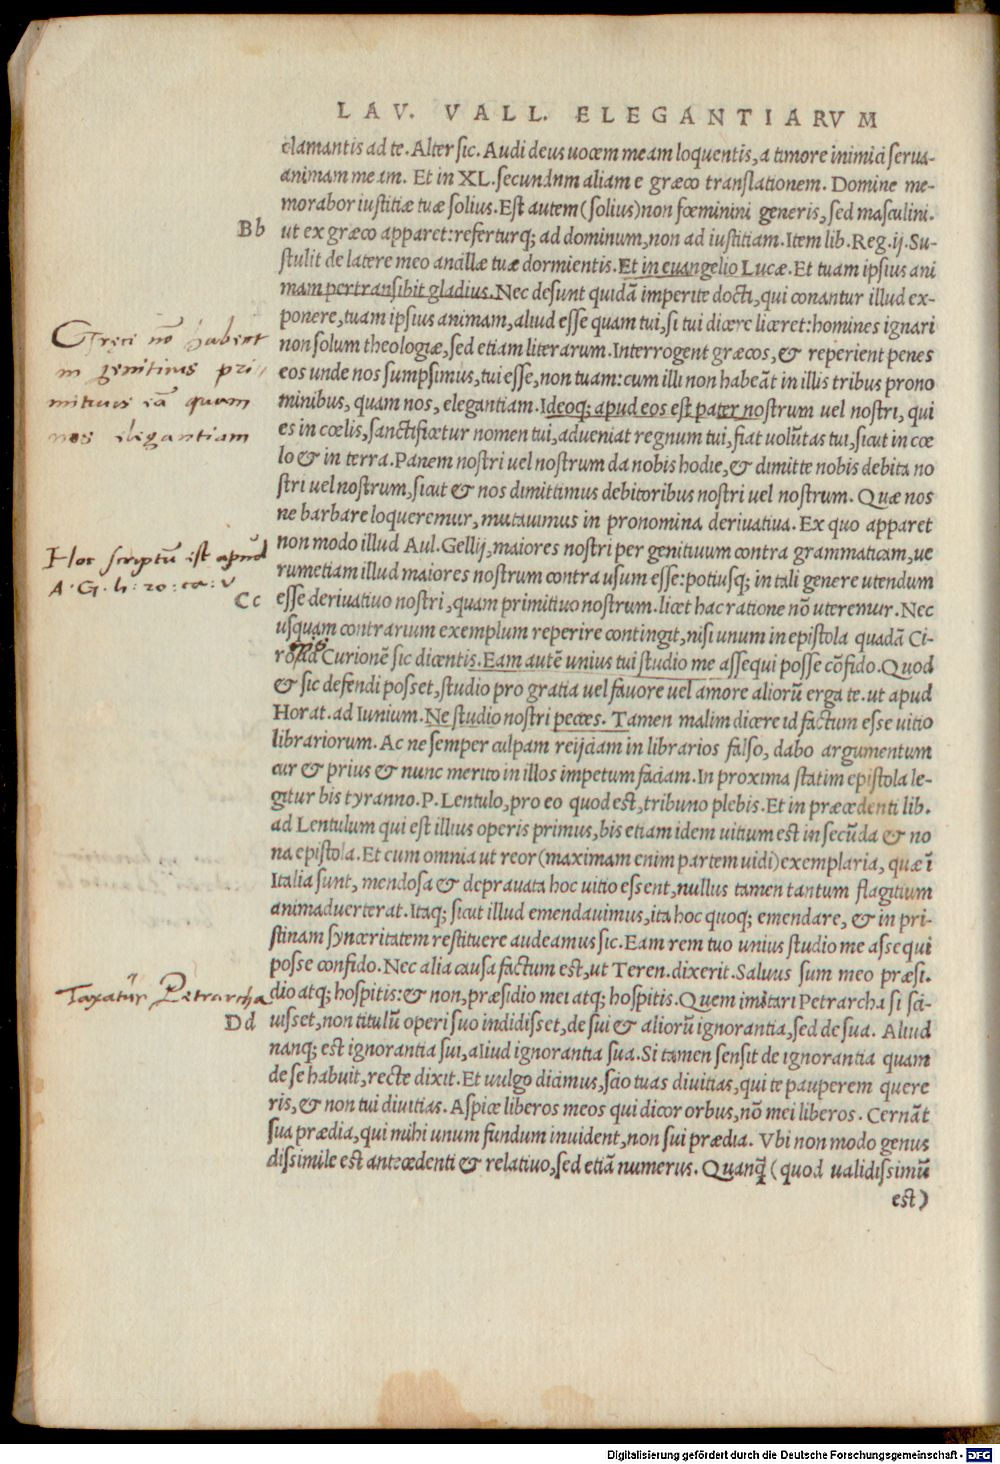 LAV. VALL. ELEGANTIARVM
clamantis ad te. Alter sic. Audi deus uocem meam loquentis, a timore inimici serua-
animam meam. Et in XL. secundnm aliam e græco translationem. Domine me-
morabor iustitiæ tuæ solius. Est autem (solius) non fœminini generis, sed masculini.
Bb
ut ex græco apparet: referturq; ad dominum, non ad iustitiam. Item lib. Reg. ij. Su-
stulit de latere meo ancillæ tuæ dormientis. Et in euangelio Lucæ. Et tuam ipsius ani
mam pertransibit gladius. Nec desunt quidã imperite docti, qui conantur illud ex-
ponere, tuam ipsius animam, aliud esse quam tui, si tui dicere liceret: homines ignari
non solum theologiæ, sed etiam literarum. Interrogent græcos, & reperient penes
eos unde nos sumpsimus, tui esse, non tuam: cum illi non habeãt in illis tribus prono
minibus, quam nos, elegantiam. Ideoq; apud eos est pater nostrum uel nostri, qui
es in cœlis, sanctificetur nomen tui, adueniat regnum tui, fiat uolũtas tui, sicut in cœ
lo & in terra. Panem nostri uel nostrum da nobis hodie, & dimitte nobis debita no
stri uel nostrum, sicut & nos dimittimus debitoribus nostri uel nostrum. Quæ nos
ne barbare loqueremur, mutauimus in pronomina deriuatiua. Ex quo apparet
non modo illud Aul. Gellij, maiores nostri per genitiuum contra grammaticam, ue
rumetiam illud maiores nostrum contra usum esse: potiusq; in tali genere utendum
Cc
esse deriuatiuo nostri, quam primitiuo nostrum. licet hac ratione nõ uteremur. Nec
usquam contrarium exemplum reperire contingit, nisi unum in epistola quadã Ci-
ro ad Curionẽ sic dicentis. Eam autẽ unius tui studio me assequi posse cõfido. Quod
& sic defendi posset, studio pro gratia uel fauore uel amore aliorũ erga te. ut apud
Horat. ad Iunium. Ne studio nostri pecces. Tamen malim dicere id factum esse uitio
librariorum. Ac ne semper culpam reijciam in librarios falso, dabo argumentum
cur & prius & nunc merito in illos impetum faciam. In proxima statim epistola le-
gitur bis tyranno. P. Lentulo, pro eo quod est, tribuno plebis. Et in præcedenti lib.
ad Lentulum qui est illius operis primus, bis etiam idem uitium est in secũda & no
na epistola. Et cum omnia ut reor (maximam enim partem uidi) exemplaria, quæ ĩ
Italia sunt, mendosa & deprauata hoc uitio essent, nullus tamen tantum flagitium
animaduerterat. Itaq; sicut illud emendauimus, ita hoc quoq; emendare, & in pri-
stinam synceritatem restituere audeamus sic. Eam rem tuo unius studio me assequi
posse confido. Nec alia causa factum est, ut Teren. dixerit. Saluus sum meo præsi.
dio atq; hospitis: & non, præsidio mei atq; hospitis. Quem imitari Petrarcha si sci-
Dd
uisset, non titulũ operi suo indidisset, de sui & aliorũ ignorantia, sed de sua. Aliud
nanq; est ignorantia sui, aliud ignorantia sua. Si tamen sensit de ignorantia quam
de se habuit, recte dixit. Et uulgo dicimus, scio tuas diuitias, qui te pauperem quere
ris, & non tui diuitias. Aspice liberos meos qui dicor orbus, nõ mei liberos. Cernãt
sua prædia, qui mihi unum fundum inuident, non sui prædia. Vbi non modo genus
dissimile est antecedenti & relatiuo, sed etiã numerus. Quanq̃ (quod ualidissimũ
est)
Gręci nõ habent
in genitiuis pri-
mitiuis eã quam
nos elegantiam
Hoc scriptũ est apud
A. G. li: 20: ca: v
Taxatur Petrarcha